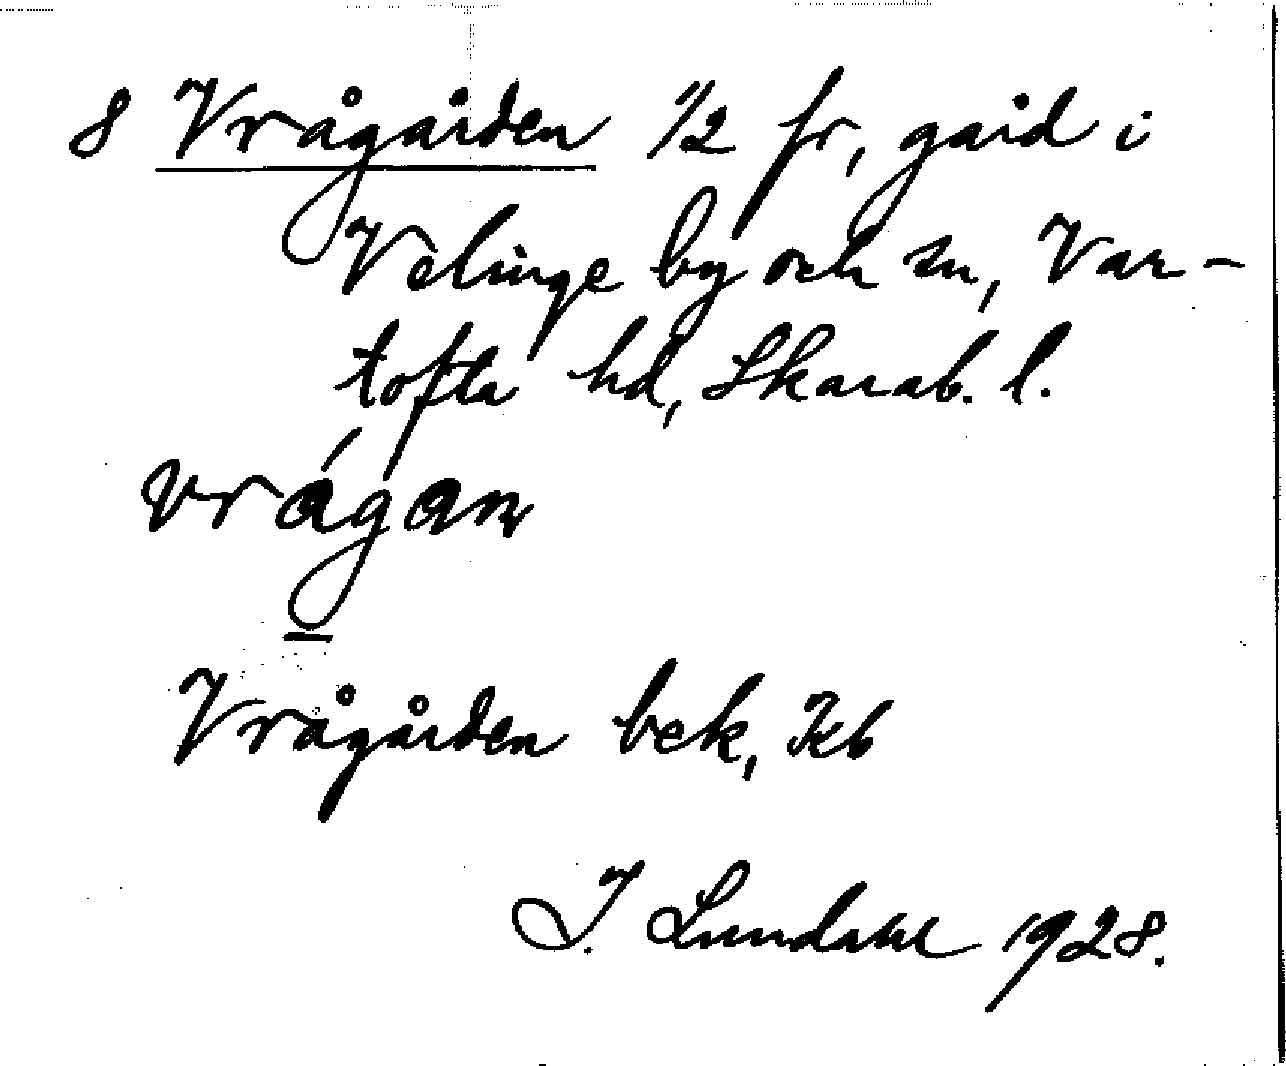 8 Vrågården 1/2 fr, gård i
Velinge by och sn, Var-
tofta hd, Skarab. l.
vrágan
Vrågården bek, Kb
I. Lundahl 1928.